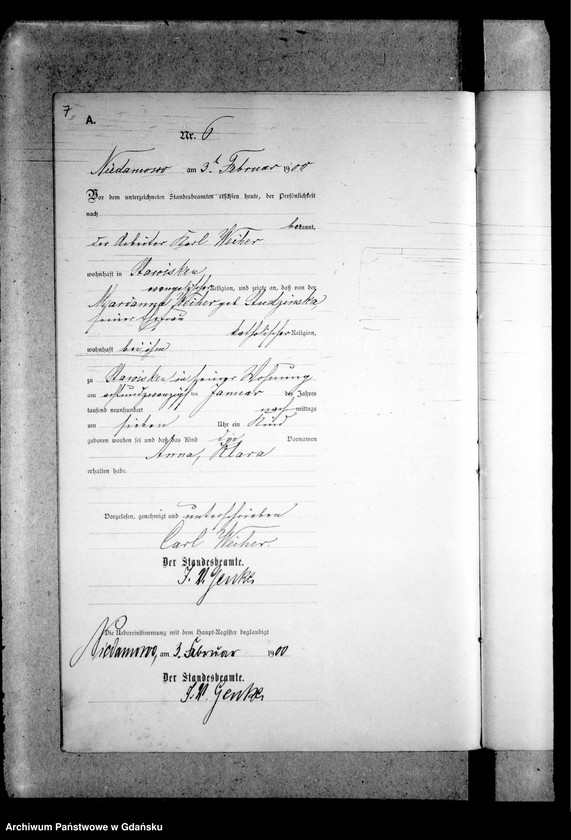 7
A.
Nr. 6
Niedamowo am 3t Februar 1900
Vor dem unterzeichneten Standesbeamten erschien heute, der Persönlichkeit
nach
bekannt,
der Arbeiter Karl Weiher
wohnhaft in Stawisken
evangelischer Religion, und zeigte an, daß von der
Marianna Weiher geb. Studzinska,
seiner Ehefrau
katholischer Religion,
wohnhaft bei ihm
zu Stawisken in seiner Wohnung
am achtundzwanzigsten Januar des Jahres
tausend neunhundert nach mittags
um sieben Uhr ein Kind
geboren worden sei und daß das Kind die Vornamen
Anna, Klara
erhalten habe.
Vorgelesen, genehmigt und unterschrieben
Carl Weiher.
Der Standesbeamte.
J. V. Genke
Die Uebereinstimmung mit dem Haupt-Register beglaubigt
Niedamowo, am 3. Februar 1900
Der Standesbeamte.
J. V. Genke
Archiwum Państwowe w Gdańsku